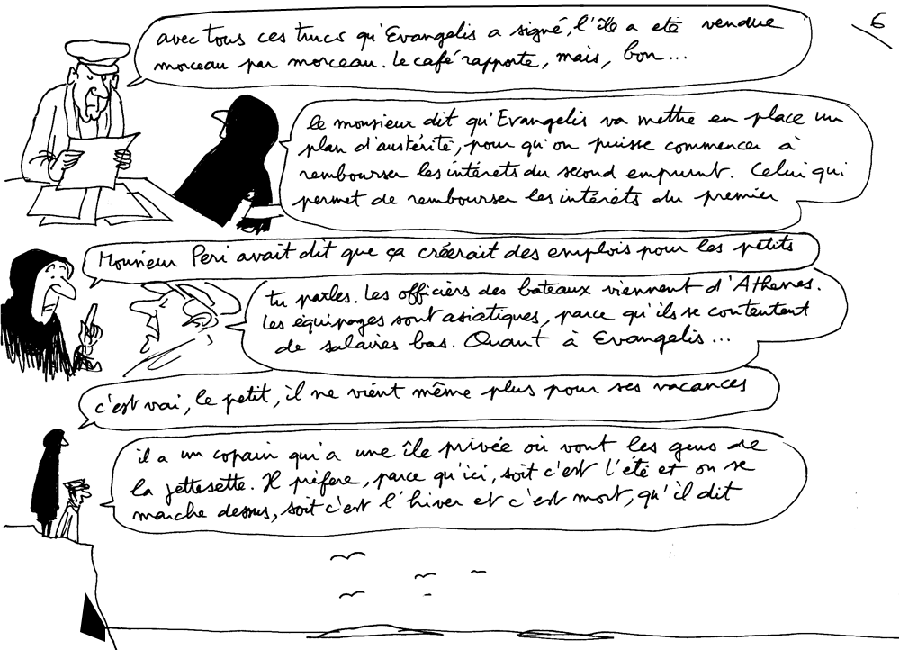 6
avec tous ces trucs qu'Evangelis a signé, l'île a été vendue
morceau par morceau. Le café rapporte, mais, bon...
le monsieur dit qu'Evangelis va mettre en place un
plan d'austérité, pour qu'on puisse commencer à
rembourser les intérêts du second emprunt. Celui qui
permet de rembourser les intérêts du premier
Monsieur Peri avait dit que ça créerait des emplois pour les petits
tu parles. Les officiers des bateaux viennent d'Athenes.
Les équipages sont asiatiques, parce qu'ils se contentent
de salaires bas. Quant à Evangelis...
c'est vrai, le petit, il ne vient même plus pour ses vacances
il a un copain qui a une île privée où vont les gens de
la jettesette. Il préfère, parce qu'ici, soit c'est l'été et on se
marche dessus, soit c'est l'hiver et c'est mort, qu'il dit